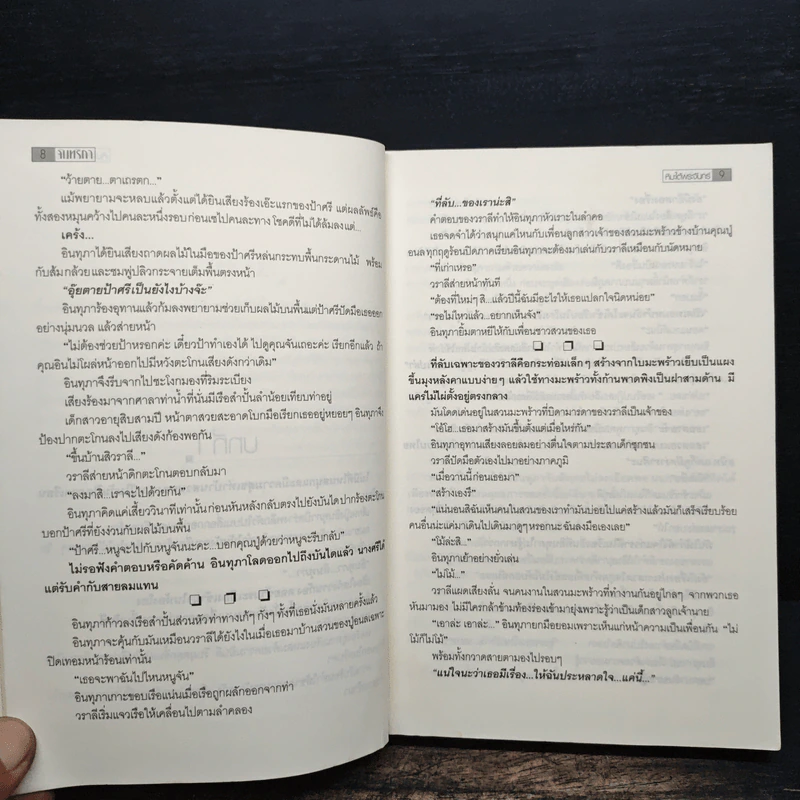 8 จันทรภา
"ว้ายตาย...ตาเถรตก..."
แม้พยายามจะหลบแล้วตั้งแต่ได้ยินเสียงร้องเอ๊ะแรกของป้าศรี แต่ผลลัพธ์คือ
ทั้งสองหมุนคว้างไปคนละหนึ่งรอบก่อนเซไปคนละทาง โชคดีที่ไม่ได้ล้มลง...
เคร้ง...
อินทุภาได้ยินเสียงถาดผลไม้ในมือของป้าศรีหล่นกระทบพื้นกระดานไม้ พร้อม
กับส้มกล้วยและชมพู่ปลิวกระจายเต็มพื้นตรงหน้า
"อุ๊ยตายป้าศรีเป็นยังไงบ้างจ๊ะ"
อินทุภาร้องอุทานแล้วก้มลงพยายามช่วยเก็บผลไม้บนพื้นแต่ป้าศรีปัดมือเธอออก
อย่างนุ่มนวล แล้วส่ายหน้า
"ไม่ต้องช่วยป้าหรอกค่ะ เดี๋ยวป้าทำเองได้ ไปดูคุณจันเถอะค่ะ เรียกอีกแล้ว ถ้า
คุณอินไม่โผล่หน้าออกไปมีหวังตะโกนเสียงดังกว่าเดิม"
อินทุภาจึงรีบจากไปชะโงกมองที่ริมระเบียง
เสียงร้องมาจากศาลาท่าน้ำที่นั่นมีเรือสำปั้นลำน้อยเทียบท่าอยู่
เด็กสาวอายุสิบสามปี หน้าตาสวยสะอาดโบกมือเรียกเธออยู่หยอยๆ อินทุภาจึง
ป้องปากตะโกนลงไปเสียงดังก้องพอกัน
"ขึ้นบ้านสิวราลี..."
วราลีส่ายหน้าดิกตะโกนตอบกลับมา
"ลงมาสิ...เราจะไปด้วยกัน"
อินทุภาคิดแค่เสี้ยววินาทีเท่านั้นก่อนหันหลังกลับตรงไปยังบันไดปากร้องตะโกน
บอกป้าศรีที่ยังง่วนกับผลไม้บนพื้น
"ป้าศรี...หนูจะไปกับหนูจันนะคะ...บอกคุณปู่ด้วยว่าหนูจะรีบกลับ"
ไม่รอฟังคำตอบหรือคัดค้าน อินทุภาโลดออกไปถึงบันไดแล้ว นางศรีได้
แต่รับคำกับสายลมแทน
❑ ❑ ❑
อินทุภาก้าวลงเรือสำปั้นส่วนหัว ท่าทางเก้ๆ กังๆ ทั้งที่เธอนั่งมันหลายครั้งแล้ว
อินทุภาจะคุ้นกับมันเหมือนวราลีได้ยังไงในเมื่อเธอมาบ้านสวนของปู่อนลเฉพาะ
ปิดเทอมหน้าร้อนเท่านั้น
"เธอจะพาฉันไปไหนหนูจัน"
อินทุภาเกาะขอบเรือแน่นเมื่อเรือถูกผลักออกจากท่า
วราลีเริ่มแจวเรือให้เคลื่อนไปตามลำคลอง
หิมะใต้พระจันทร์ 9
"ที่ลับ...ของเราน่ะสิ"
คำตอบของวราลีทำให้อินทุภาหัวเราะในลำคอ
เธอจดจำได้ว่าสนุกแค่ไหนกับเพื่อนลูกสาวเจ้าของสวนมะพร้าวข้างบ้านคุณปู่
อนล ทุกฤดูร้อนปิดภาคเรียนอินทุภาจะต้องมาเล่นกับวราลีเหมือนกับนัดหมาย
"ที่เก่าเหรอ"
วราลีส่ายหน้าทันที
"ต้องที่ใหม่ๆ สิ...แล้วปีนี้ฉันมีอะไรให้เธอแปลกใจนิดหน่อย"
"รอไม่ไหวแล้ว...อยากเห็นจัง"
อินทุภายิ้มตาหยีให้กับเพื่อนชาวสวนของเธอ
❑ ❑ ❑
ที่ลับเฉพาะของวราลีคือกระท่อมเล็กๆ สร้างจากใบมะพร้าวเย็บเป็นแผง
ขึ้นมุงหลังคาแบบง่ายๆ แล้วใช้ทางมะพร้าวทั้งก้านพาดพิงเป็นฝาสามด้าน มี
แคร่ไม้ไผ่ตั้งอยู่ตรงกลาง
มันโดดเด่นอยู่ในสวนมะพร้าวที่บิดามารดาของวราลีเป็นเจ้าของ
"โอ้โฮ...เธอมาสร้างมันขึ้นตั้งแต่เมื่อไหร่กัน"
อินทุภาอุทานเสียงลอยลมอย่างตื่นใจตามประสาเด็กซุกซน
วราลีปัดมือตัวเองไปมาอย่างภาคภูมิ
"เมื่อวานนี้ก่อนเธอมา"
"สร้างเองรึ"
"แน่นอนสิฉันเห็นคนในสวนของเราทำมันบ่อยไปแค่สร้างแล้วมันก็เสร็จเรียบร้อย
คนอื่นน่ะแค่มาเดินไปเดินมาดูๆ หรอกนะ ฉันลงมือเองเลย"
"โม้ล่ะสิ..."
อินทุภาเย้าอย่างยั่วเล่น
"ไม่โม้..."
วราลีแผดเสียงลั่น จนคนงานในสวนมะพร้าวที่ทำงานกันอยู่ใกล้ๆ จากพวกเธอ
หันมามอง ไม่มีใครกล้าข้ามท้องร่องเข้ามายุ่งเพราะรู้ว่าเป็นเด็กสาวลูกเจ้านาย
"เอาล่ะ เอาล่ะ..." อินทุภายกมือยอมเพราะเห็นแก่หน้าความเป็นเพื่อนกัน "ไม่
โม้ก็ไม่โม้"
พร้อมทั้งกวาดสายตามองไปรอบๆ
"แน่ใจนะว่าเธอมีเรื่อง...ให้ฉันประหลาดใจ...แค่นี้..."